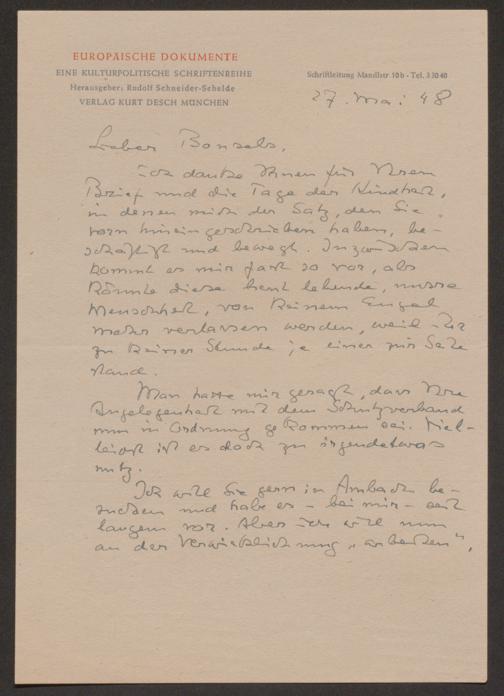 EUROPÄISCHE DOKUMENTE
EINE KULTURPOLITISCHE SCHRIFTENREIHE
Herausgeber: Rudolf Schneider-Schelde
VERLAG KURT DESCH MÜNCHEN
Schriftleitung Mandlstr 10b - Tel. 33040
27. Mai 48
Lieber Bonsels,
ich danke Ihnen für Ihren
Brief und die Tage der Kindheit,
in denen mich der Satz, den Sie
vorn hineingeschrieben haben, be-
schäftigt und bewegt. Inzwischen
kommt es mir fast so vor, als
könnte diese heut lebende, unsre
Menschheit, von keinem Engel
mehr verlassen werden, weil ihr
zu keiner Stunde je einer zur Seite
stand.
Man hatte mir gesagt, dass Ihre
Angelegenheit mit dem Schutzverband
nun in Ordnung gekommen sei. Viel-
leicht ist es doch zu irgendetwas
nutz.
Ich will Sie gern in Ambach be-
suchen und habe es - bei mir - seit
langem vor. Aber ich will nun
an der Verwirklichung „arbeiten",